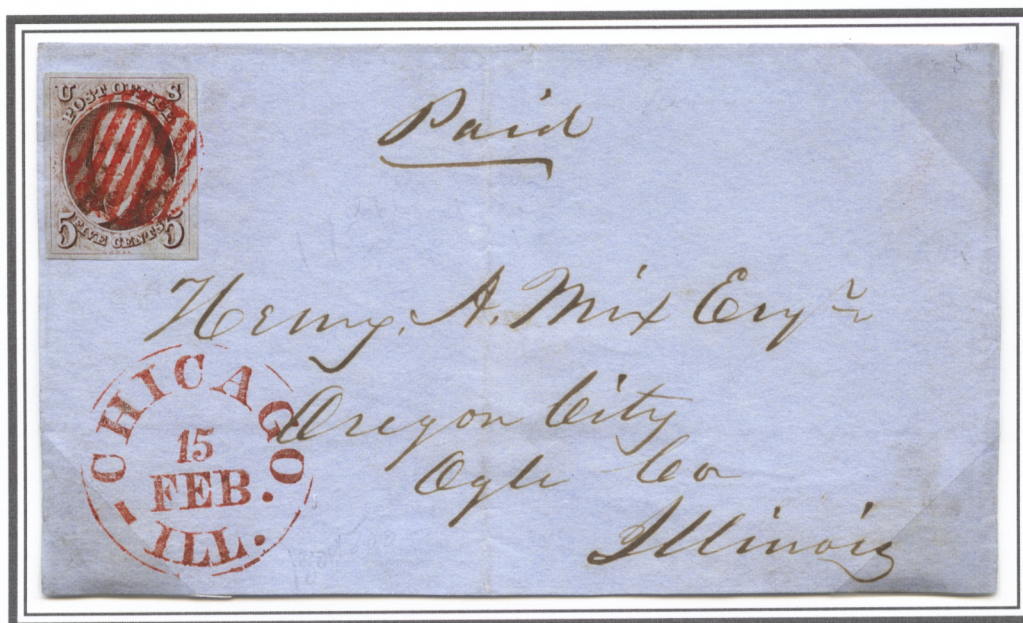 U S
POST OFFICE
5 FIVE CENTS 5
Paid
Henry. A. Mix Esqr
Oregon City
Ogle Co
Illinois
CHICAGO
15
FEB.
ILL.